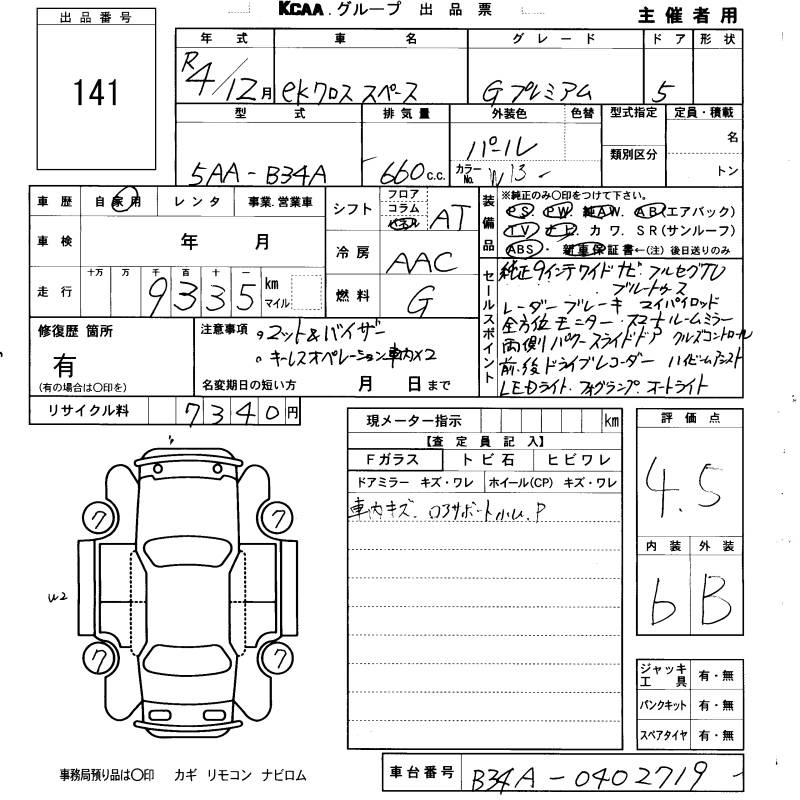 KCAA.グループ 出品票
主催者用
出品番号
141
年式 車名 グレード ドア 形状
R4/12月 ekクロス スペース Gプレミアム 5
型式 排気量 外装色 色替 型式指定 定員・積載
5AA-B34A 660c.c. パール 類別区分 名
カラーNo. W13 トン
車歴 自家用 レンタ 事業.営業車
車検 年 月
走行 十万 万 千 百 十 一
9335 km マイル
シフト フロア コラム パネル AT
冷房 AAC
燃料 G
装備品
※純正のみ○印をつけて下さい。
PS PW. 純AW. AB(エアバック)
TV ナビ. カワ. SR(サンルーフ)
ABS・ 新車保証書←(注) 後日送りのみ
セールスポイント
純正9インチワイドナビ・フルセグTV
ブルートゥース
レーダーブレーキ マイパイロット
全方位モニター・スマートルームミラー
両側パワースライドドア クルーズコントロール
前.後ドライブレコーダー ハイビームアシスト
LEDライト.フォグランプ.オートライト
修復歴 箇所
有
(有の場合は○印を)
注意事項
・マット&バイザー
・キーレスオペレーション車内×2
名変期日の短い方 月 日まで
リサイクル料 7340円
現メーター指示 km
【査定員記入】
Fガラス トビ石 ヒビワレ
ドアミラー キズ・ワレ ホイール(CP) キズ・ワレ
車内キズ. ロアサポート小U.P
評価点
4.5
内装 外装
b B
7 7
U2
7 7
ジャッキ工具 有・無
パンクキット 有・無
スペアタイヤ 有・無
事務局預り品は○印 カギ リモコン ナビロム
車台番号 B34A-0402719